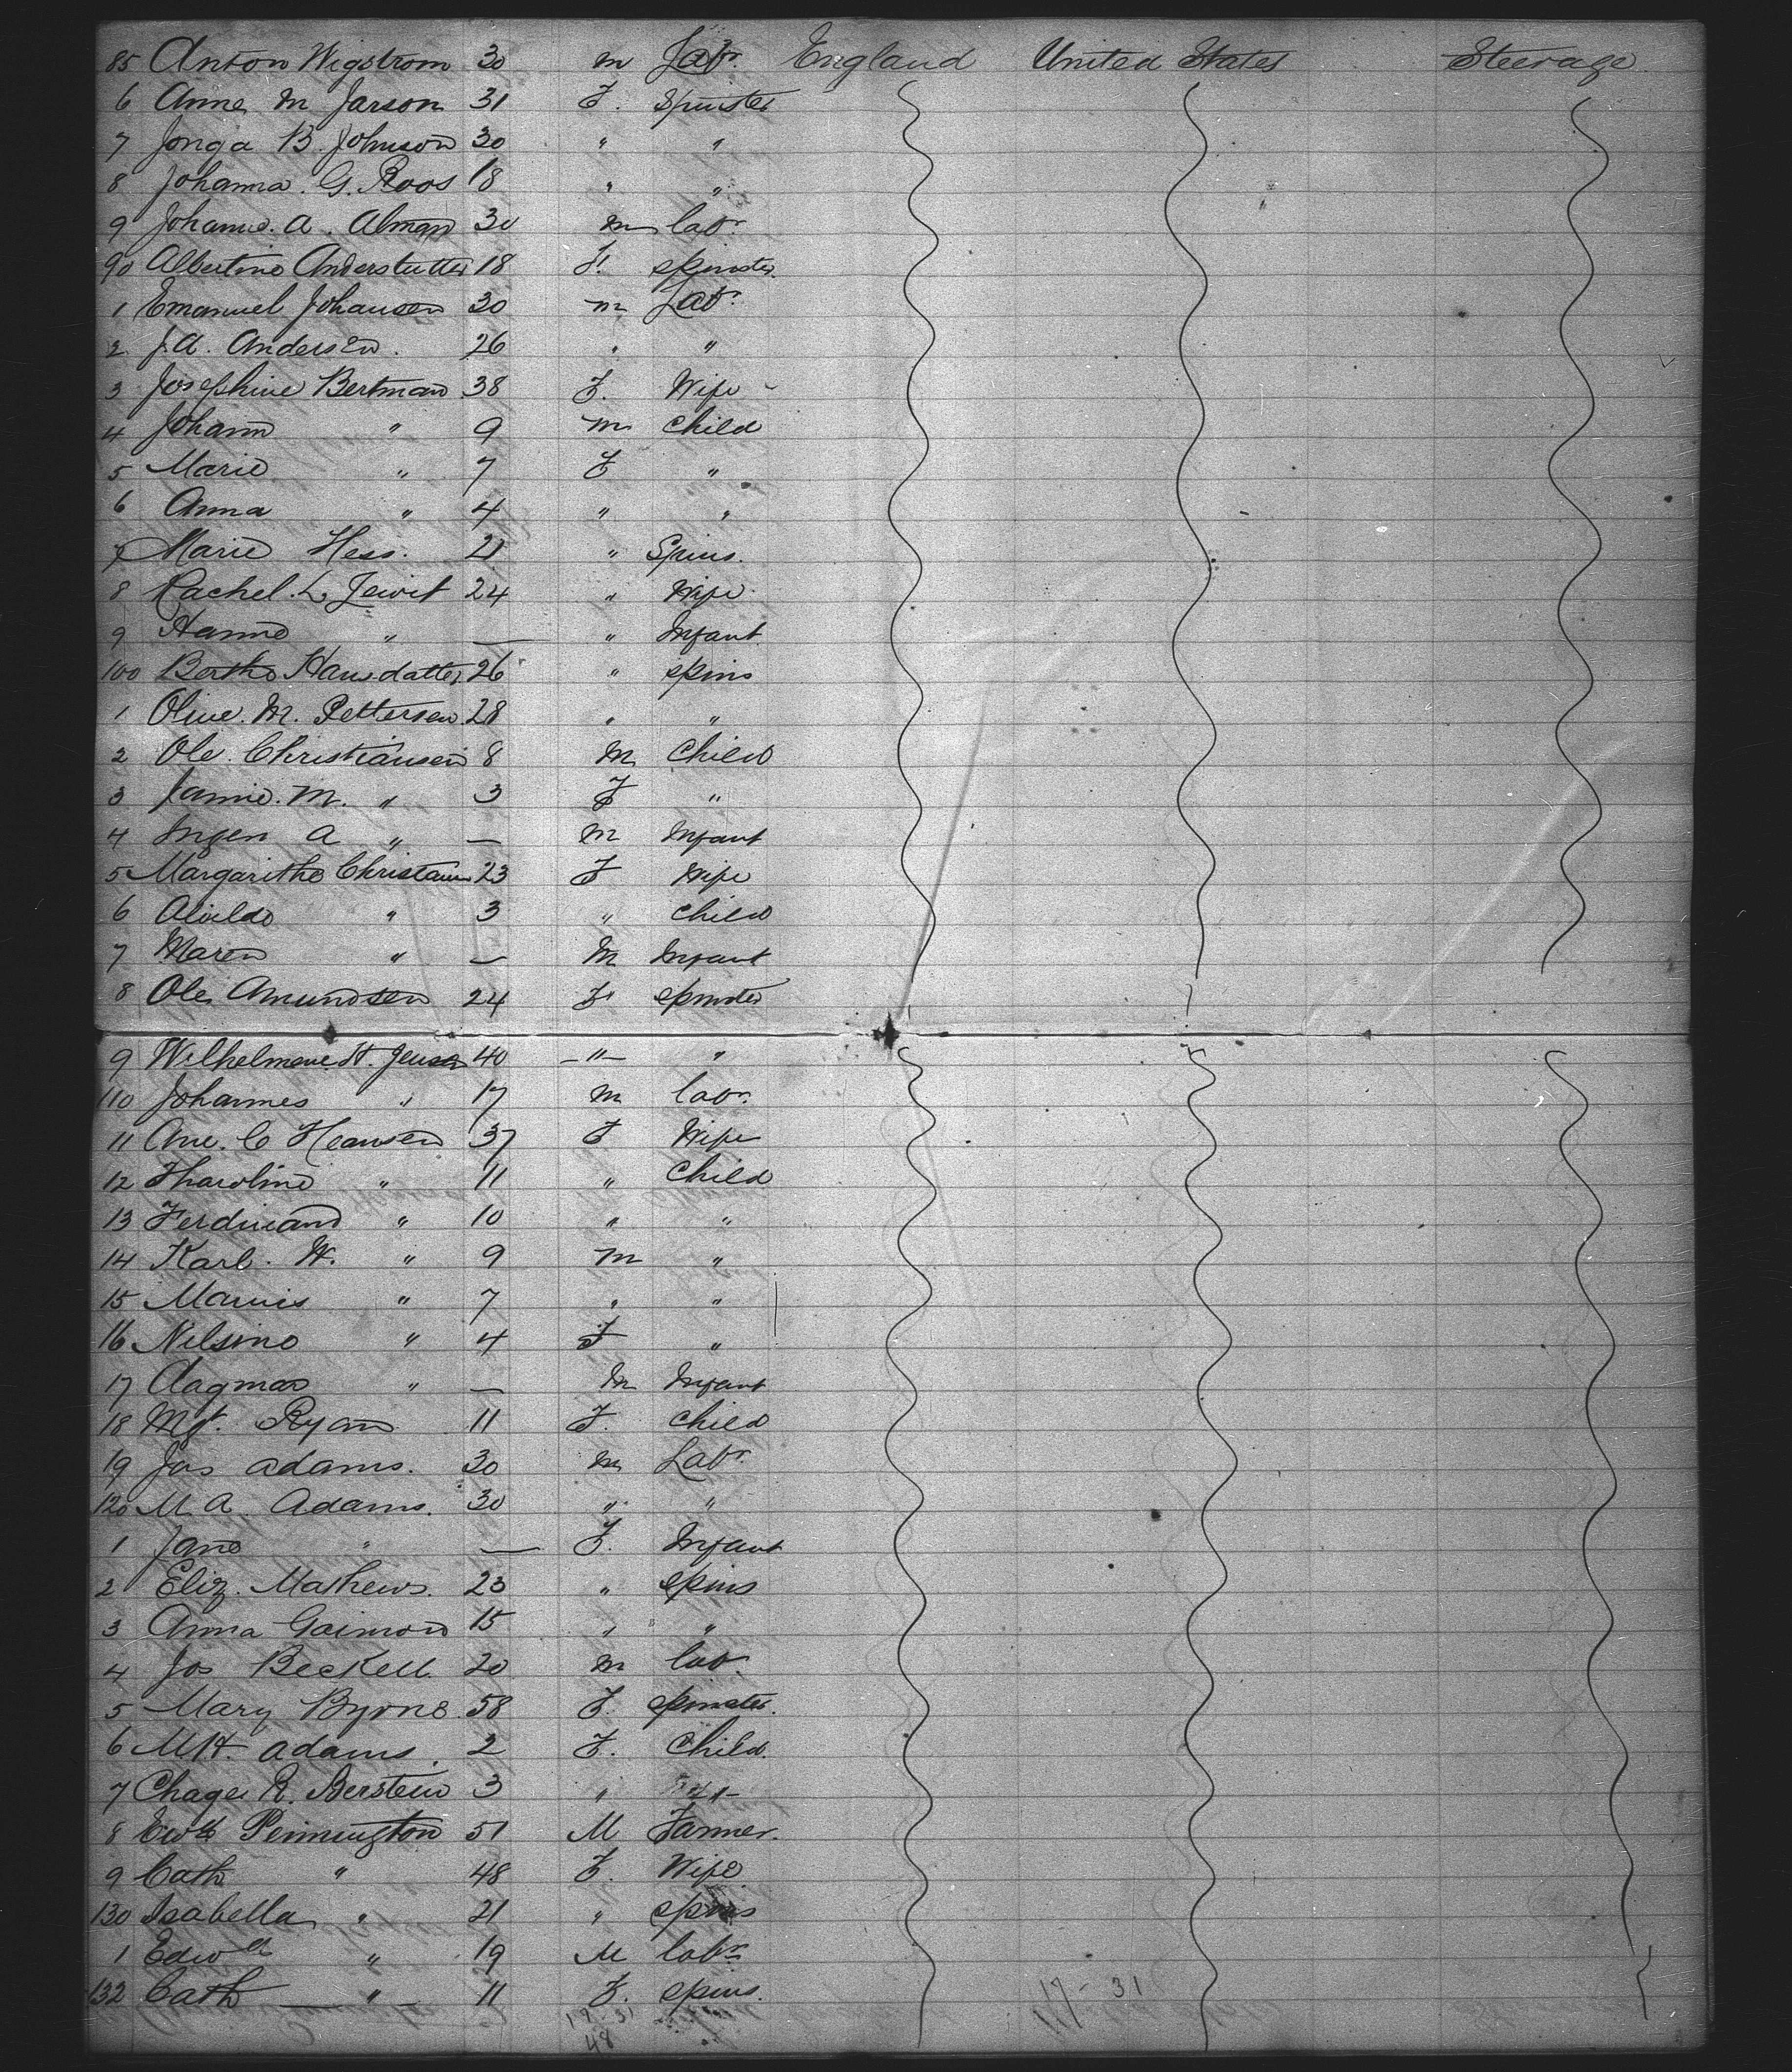 85 Anton Wigstrom 30 m Labr. England United States Steerage
6 Anna M Jarson 31 F. Spinster
7 Jonga B. Johnson 30 " "
8 Johanna. G. Roos 18 " "
9 Johann. A. Alman 30 m labr.
90 Albertine 18 F. Spinster.
1 Emanuel Johansen 30 m Labr.
2 J.A. Andersen. 26 " "
3 Josephine Bertman 38 F. Wife
4 Johann " 9 m Child
5 Marie " 7 F "
6 Anna " 4 " "
7 Marie Hess. 21 " Spins.
8 Rachel. L. 24 " Wife
9 Hanne " — " Infant
100 Bertha Hansdatter 26 " Spins
1 Oline. M. Pettersen 28 " "
2 Ole. Christiansen 8 M Child
3 M. " 3 F "
4 A " — m Infant
5 Margarithe 23 F Wife
6 " 3 " Child
7 Maren " — M Infant
8 Ole Amundsen 24 F Spinster
9 H. Jensen 40 — " — "
110 Johannes " 17 m labr.
11 Ane. C Heansen 37 F Wife
12 " 11 " Child
13 Ferdinand " 10 " "
14 Karl. W. " 9 m "
15 " 7 " "
16 Nilsine " 4 F "
17 " — M Infant
18 Mgt. Ryan 11 F. Child
19 Jas Adams. 30 m Labr.
120 M.A. Adams. 30 " "
1 Jane " — F. Infant
2 Eliz. Mathews. 23 " Spins
3 Anna 15 " "
4 Jos Beckell 20 m labr.
5 Mary Byrne. 58 F. Spinster.
6 M.H. Adams. 2 F. Child.
7 R. Berstein 3 "
8 Edwd Pennington 51 M Farmer.
9 Cath " 48 F. Wife
130 Isabella " 21 " Spins
1 Edwd " 19 M labr.
132 Cath — " — 11 F. Spins.
17 - 31
48
17 - 31